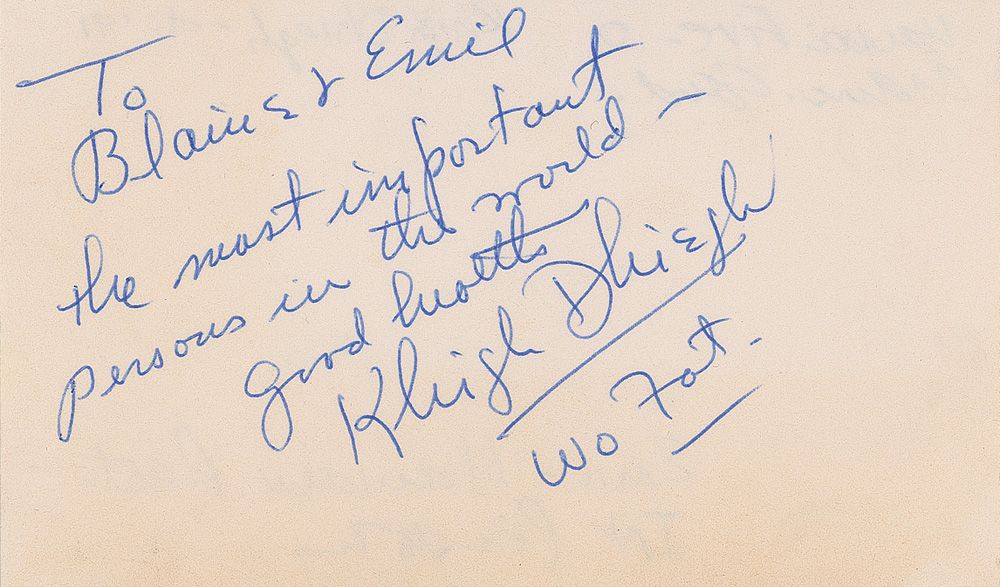 To
Blaine & Emil
the most important
persons in the world -
good health
Khigh Dhiegh
Wo Fat.